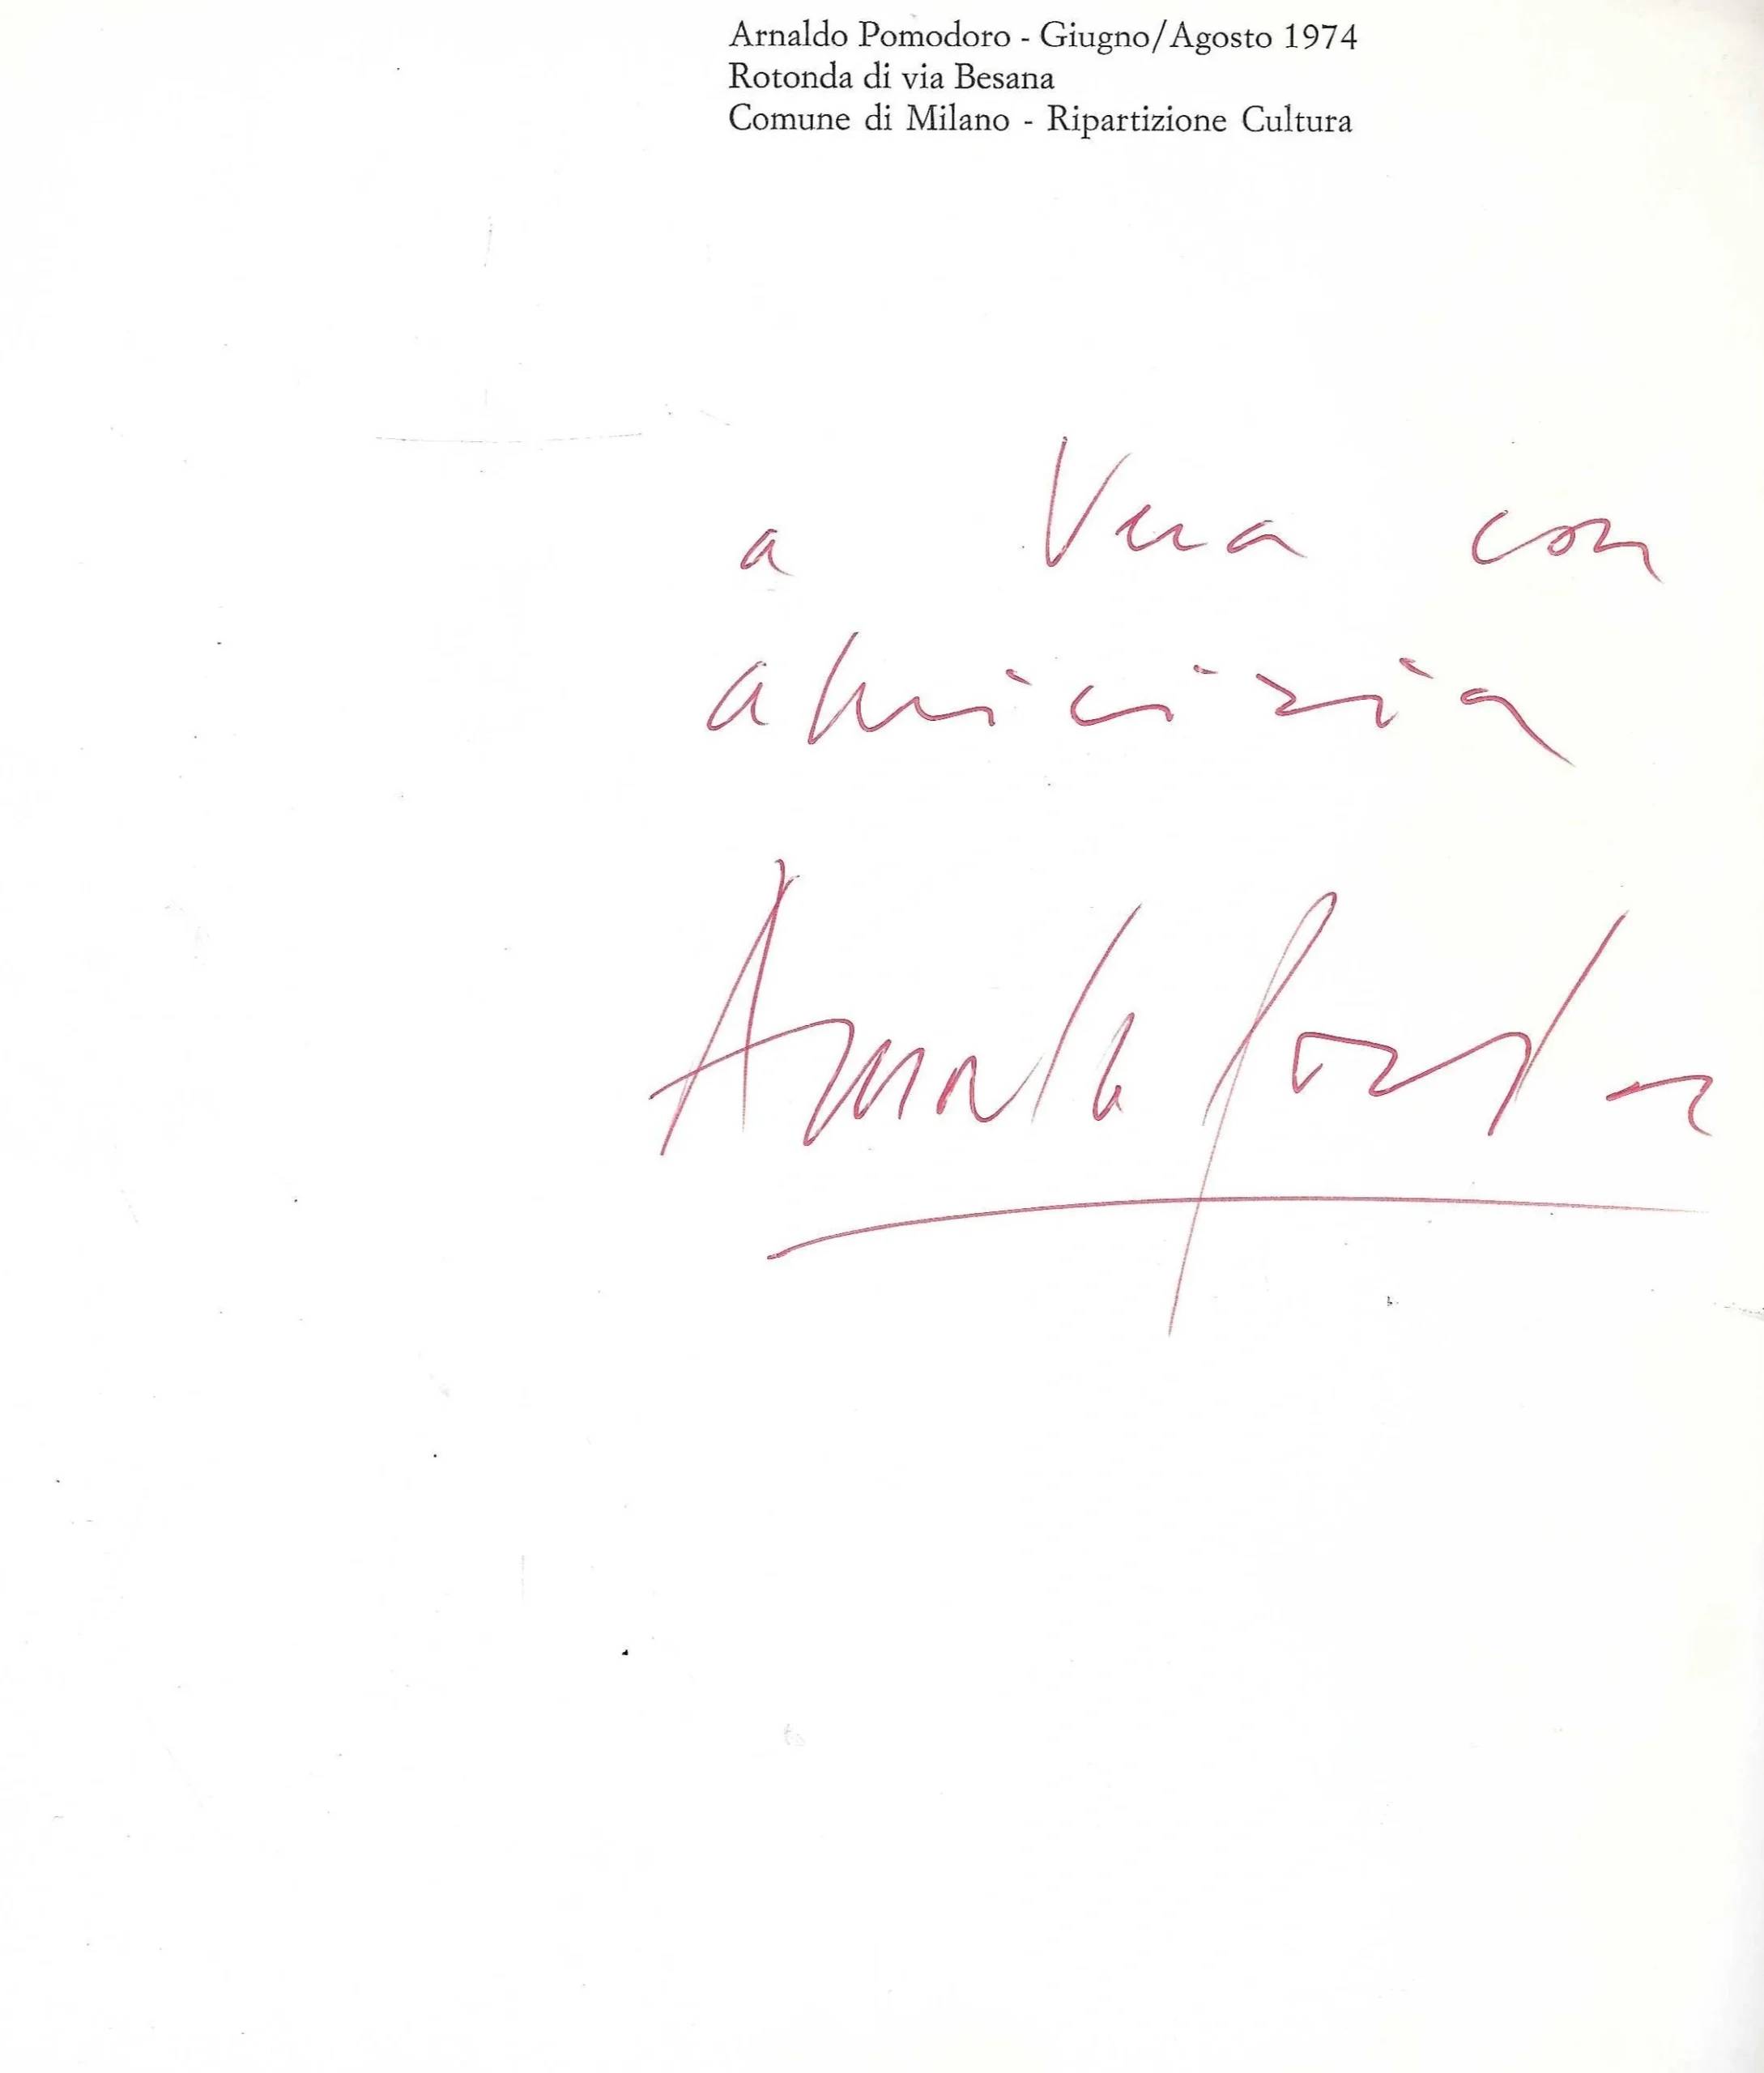 Arnaldo Pomodoro - Giugno/Agosto 1974
Rotonda di via Besana
Comune di Milano - Ripartizione Cultura
a Vera con
amicizia
Arnaldo Pomodoro